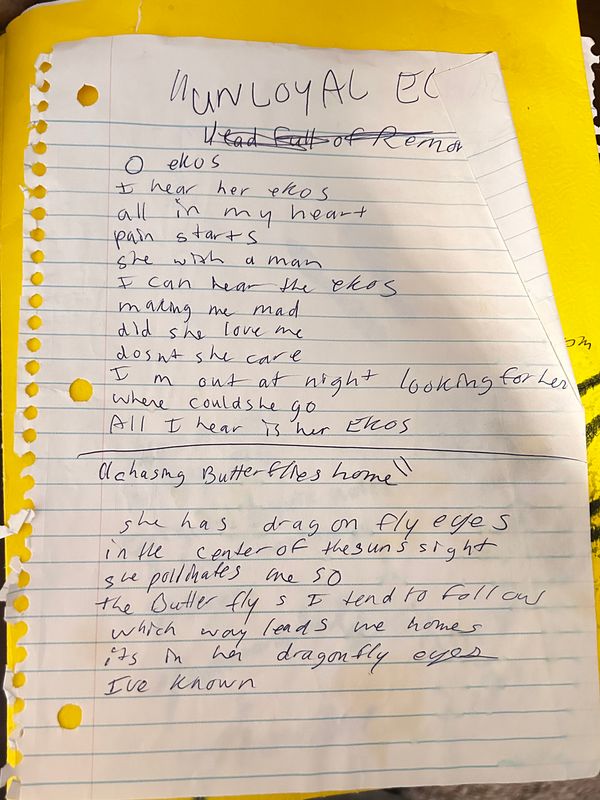 "UNLOYAL EC
Head full of Remor
O ekos
I hear her ekos
all in my heart
pain starts
she with a man
I can hear the ekos
making me mad
did she love me
dosnt she care
I m out at night looking for her
where could she go
All I hear is her EKOS
"chasing Butterflies home"
she has dragon fly eyes
in the center of the suns sight
she pollinates me so
the Butter fly s I tend to follow
which way leads me homes
its in her dragonfly eyes
I've known